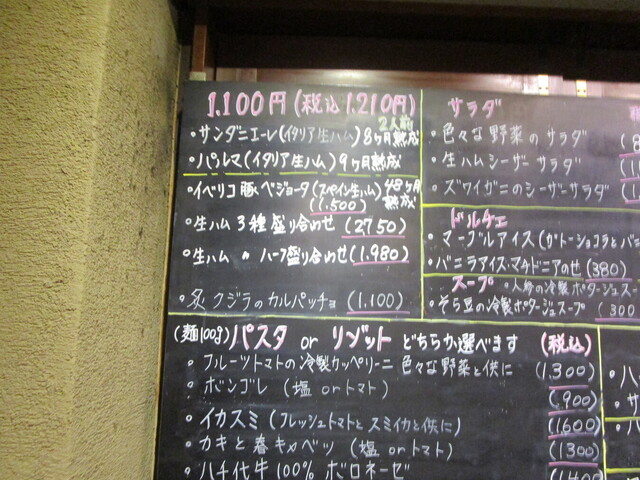 1.100円(税込1.210円)
2人前
・サンダニエーレ(イタリア生ハム)8ヶ月熟成
・パルマ(イタリア生ハム)9ヶ月熟成
・イベリコ豚ベジョータ(スペイン生ハム)48ヶ月熟成
(1.500)
・生ハム3種盛り合わせ(2750)
・生ハム 〃 ハーフ盛り合わせ(1.980)
・炙クジラのカルパッチョ(1.100)
サラダ
・色々な野菜のサラダ
・生ハムシーザーサラダ
・ズワイガニのシーザーサラダ
ドルチェ
・マーブルアイス(ガトーショコラと
・バニラアイス・マチドニアのせ(380)
スープ ・人参の冷製ポタージュスー
・そら豆の冷製ポタージュスープ(300
(麺100g)パスタ or リゾット どちらか選べます (税込)
・フルーツトマトの冷製カッペリーニ 色々な野菜と供に (1.300)
・ボンゴレ (塩 orトマト) (.900)
・イカスミ (フレッシュトマトとスミイカと供に) (1600)
・カキと春キャベツ (塩 orトマト) (1300)
・八千代牛100% ボロネーゼ (1400